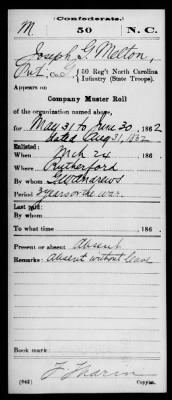 Confederate.
M. 50 N. C.
Joseph G. Melton,
Pvt, Co. 50 Reg't North Carolina
Infantry (State Troops).
Appears on
Company Muster Roll
of the organization named above,
for May 31 to June 30, 1862
dated Aug 31, 1862
Enlisted:
When Mch 24, 186 .
Where Rutherford
By whom GW Andrews
Period 3 years or the war.
Last paid:
By whom
To what time , 186 .
Present or absent Absent
Remarks: Absent without leave
Book mark:
(642) Copyist.